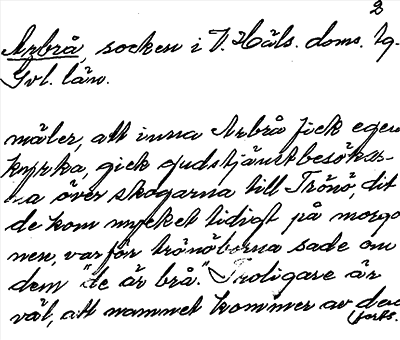 2
Arbrå, socken i V. Häls. doms. lg.
Gvl. län.
mäler, att innan Arbrå fick egen
kyrka, gick gudstjänstbesökar-
-a över skogarna till Trönö, dit
de kom mycket tidigt på morgo
nen, varför trönöborna sade om
dem "de är brå." Troligare är
väl, att namnet kommer av den
(forts.